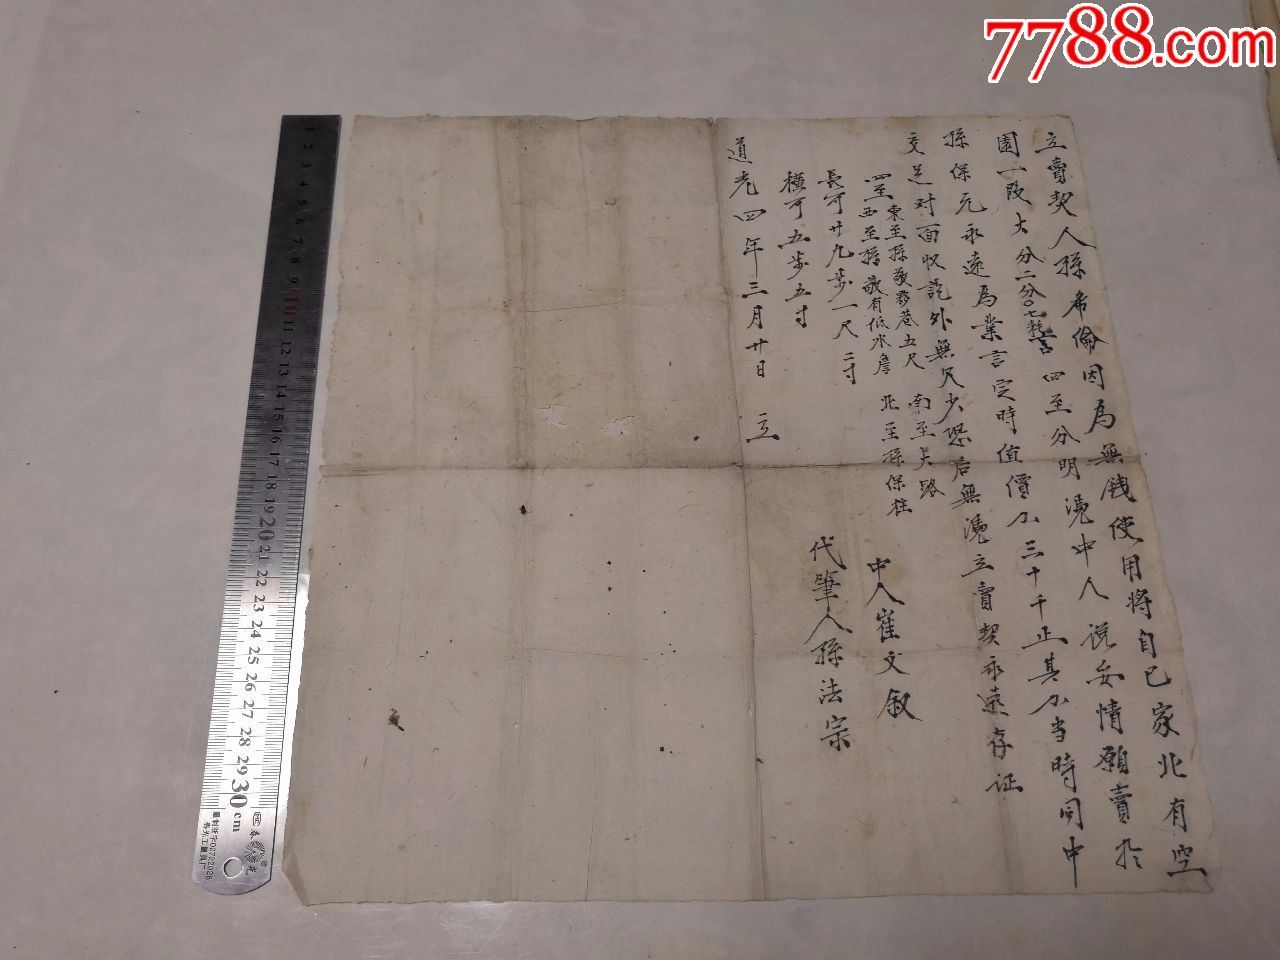 7788.com
立賣契人孫希倫因為無錢使用將自己家北有空
園一段大分二分〇七耗言四至分明憑中人说妥情願賣於
孫保元永遠為業言定時值價 三十千正其 当時同中
交足对面收訖外無欠少恐后無憑立賣契永遠存证
四至 東至孫敬 巷五尺 南至大路
西至孫敬有低水詹 北至孫保柱
長可廿九步一尺二寸
横可五步五寸
道光四年三月廿日 立
中人崔文叙
代筆人孫法宗
1 2 3 4 5 6 7 8 9 10 11 12 13 14 15 16 17 18 19 20 21 22 23 24 25 26 27 28 29 30 cm
春光